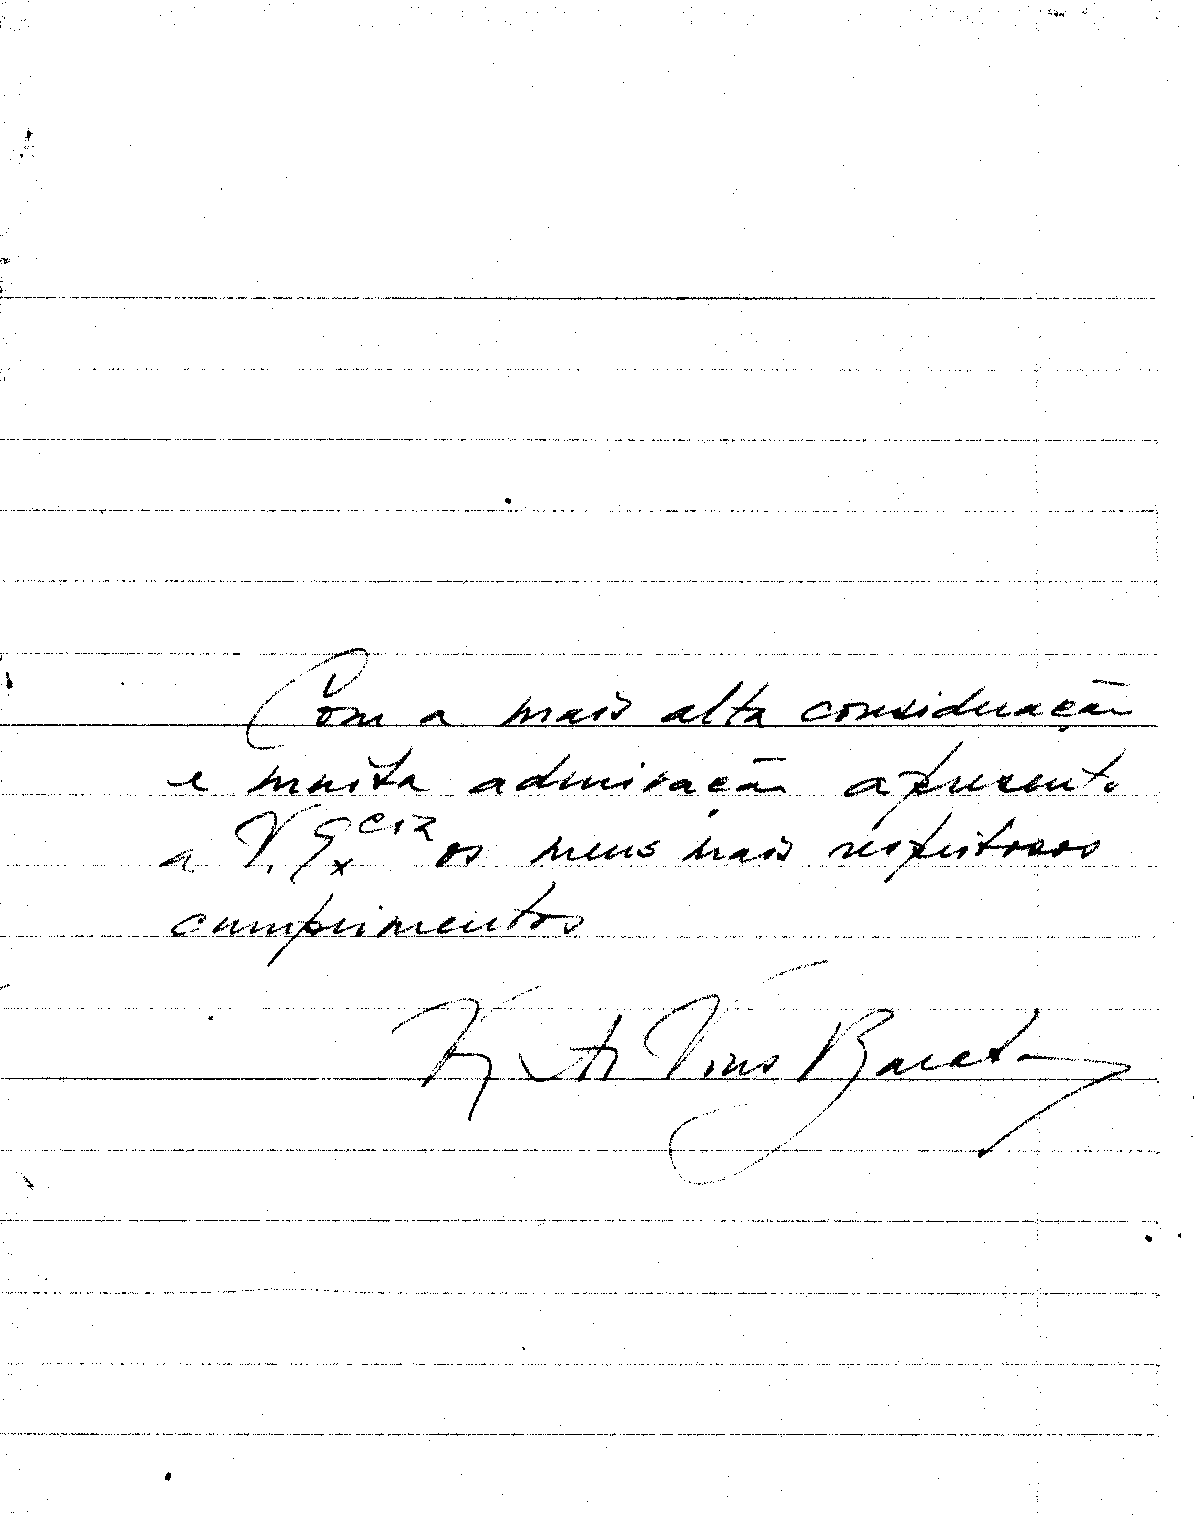 Com a mais alta consideração
e muita admiração apresento
a V. Excia os meus mais respeitosos
cumprimentos
Barata